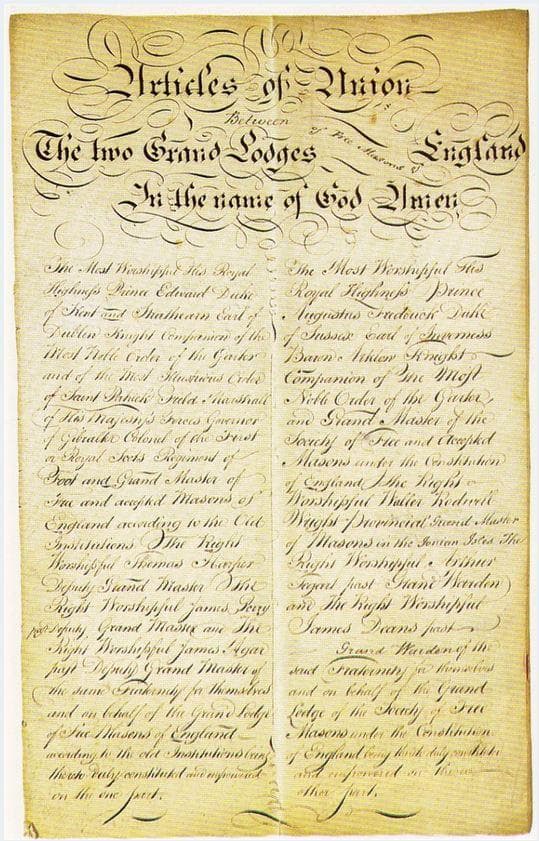 Articles of Union
Between
The two Grand Lodges of Free Masons of England
In the name of God Amen
The Most Worshipful His Royal
Highness Prince Edward Duke
of Kent and Strathearn Earl of
Dublin Knight Companion of the
Most Noble Order of the Garter
and of the Most Illustrious Order
of Saint Patrick Field Marshall
of His Majesty's Forces Governor
of Gibralter Colonel of the First
or Royal Scots Regiment of
Foot and Grand Master of
Free and accepted Masons of
England according to the Old
Institutions The Right
Worshipful Thomas Harper
Deputy Grand Master The
Right Worshipful James Perry
Past Deputy Grand Master and The
Right Worshipful James Agar
past Deputy Grand Master of
the same Fraternity for themselves
and on behalf of the Grand Lodge
of Free Masons of England
according to the old Institutions being
thereto duly constituted and empowered
on the one part.
The Most Worshipful His
Royal Highness Prince
Augustus Frederick Duke
of Sussex Earl of Inverness
Baron Arklow Knight
Companion of The Most
Noble Order of the Garter
and Grand Master of the
Society of Free and Accepted
Masons under the Constitution
of England The Right
Worshipful Waller Rodwell
Wright Provincial Grand Master
of Masons in the Ionian Isles The
Right Worshipful Arthur
Tegart past Grand Warden
and The Right Worshipful
James Deans past
Grand Warden of the
said Fraternity for themselves
and on behalf of the Grand
Lodge of the Society of Free
Masons under the Constitution
of England being thereto duly constituted
and empowered on the
other part.